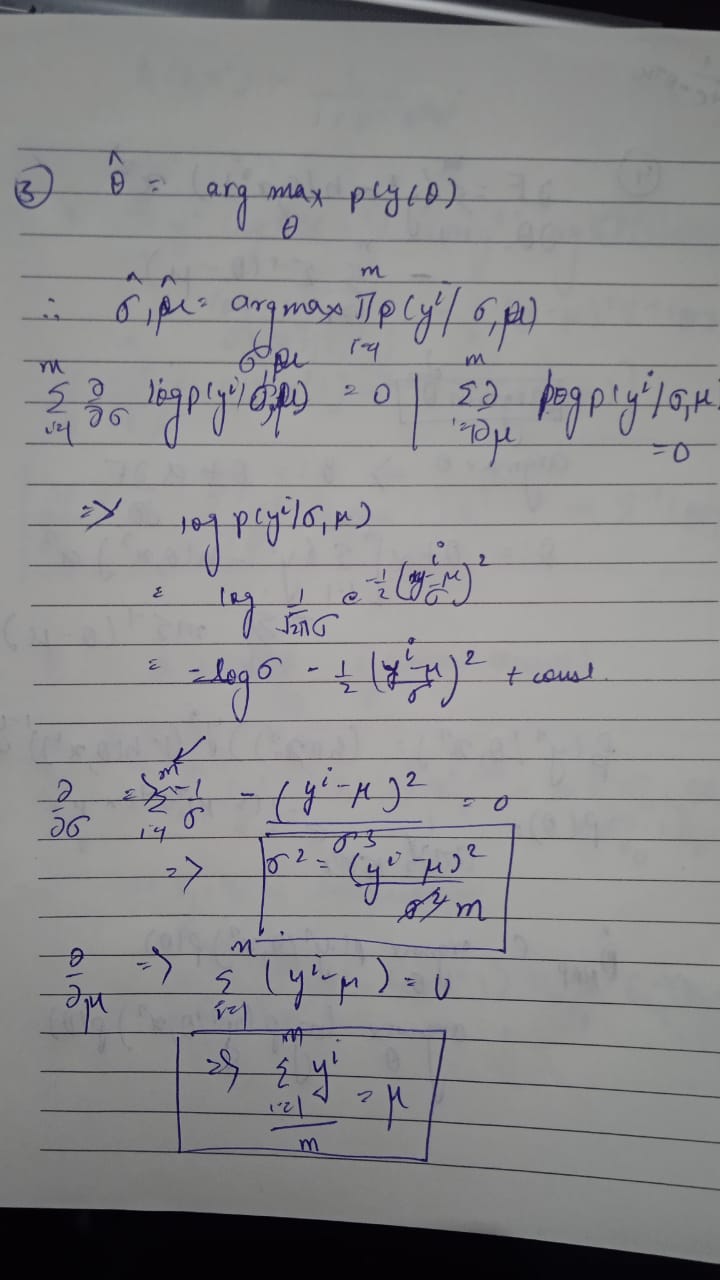 ③ θ̂ = arg max p(y|θ)
θ
∴ σ̂, μ̂ = argmax Π p(yⁱ/σ, μ)
m
σ, μ i=1
m Σ i=1 ∂/∂σ log p(yⁱ/σ, μ) = 0 | m Σ i=1 ∂/∂μ log p(yⁱ/σ, μ)
= 0
=> log p(yⁱ/σ, μ)
= log 1/√2πσ e^(-1/2 ((yⁱ-μ)/σ)²)
= = log σ - 1/2 ((yⁱ-μ)/σ)² + const.
∂/∂σ => m Σ i=1 -1/σ - (yⁱ-μ)²/σ³ = 0
=> σ² = (yⁱ-μ)²/m
∂/∂μ => m Σ i=1 (yⁱ-μ) = 0
=> m Σ i=1 yⁱ / m = μ